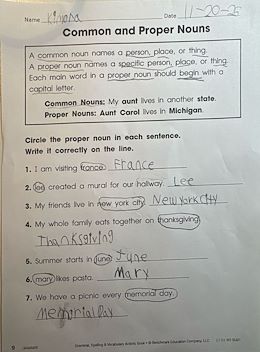 Name Kinona Date 11-20-25
Common and Proper Nouns
A common noun names a person, place, or thing.
A proper noun names a specific person, place, or thing.
Each main word in a proper noun should begin with a
capital letter.
Common Nouns: My aunt lives in another state.
Proper Nouns: Aunt Carol lives in Michigan.
Circle the proper noun in each sentence.
Write it correctly on the line.
1. I am visiting france. France
2. lee created a mural for our hallway. Lee
3. My friends live in new york city. New York City
4. My whole family eats together on thanksgiving.
Thanksgiving
5. Summer starts in june. June
6. mary likes pasta. Mary
7. We have a picnic every memorial day.
Memorial Day
9
Grammar, Spelling & Vocabulary Activity Book • © Benchmark Education Company, LLC